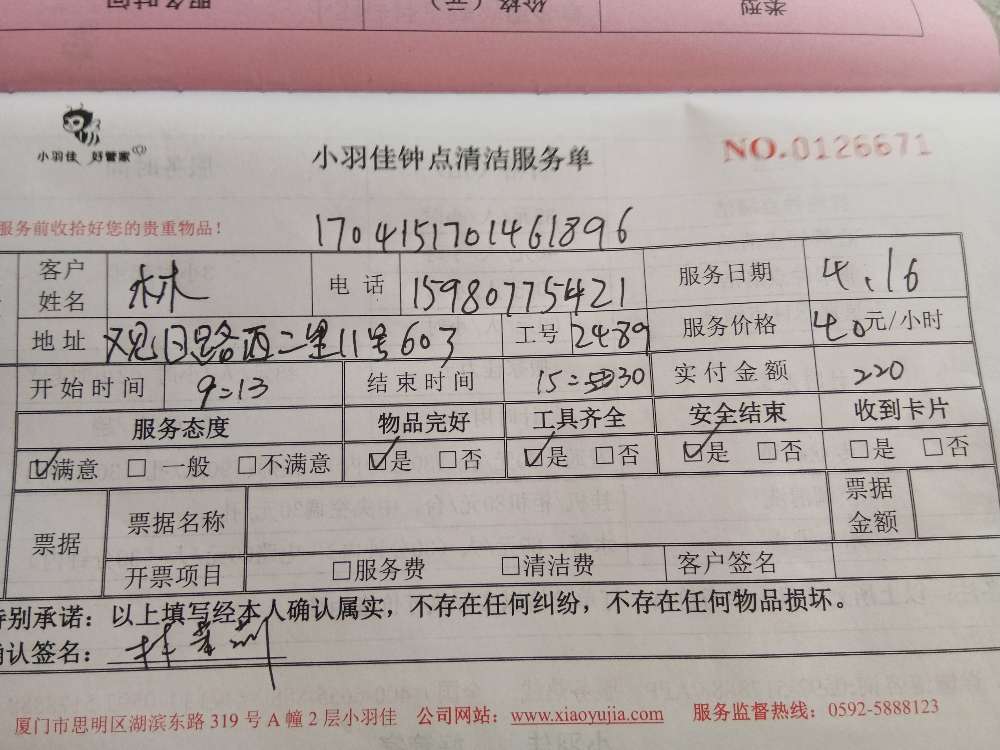 服务时间 价格（元） 类型
小羽佳 好管家
小羽佳钟点清洁服务单 NO.0126671
服务前收拾好您的贵重物品！
1704151701461896
客户姓名 林 电话 15980775421 服务日期 4.16
地址 观日路西二里11号603 工号 2489 服务价格 40元/小时
开始时间 9:13 结束时间 15:30 实付金额 220
服务态度 物品完好 工具齐全 安全结束 收到卡片
☑满意 □一般 □不满意 ☑是 □否 ☑是 □否 ☑是 □否 □是 □否
票据 票据名称 票据金额
开票项目 □服务费 □清洁费 客户签名
特别承诺：以上填写经本人确认属实，不存在任何纠纷，不存在任何物品损坏。
确认签名：
厦门市思明区湖滨东路 319 号 A 幢 2 层小羽佳 公司网站：www.xiaoyujia.com 服务监督热线：0592-5888123